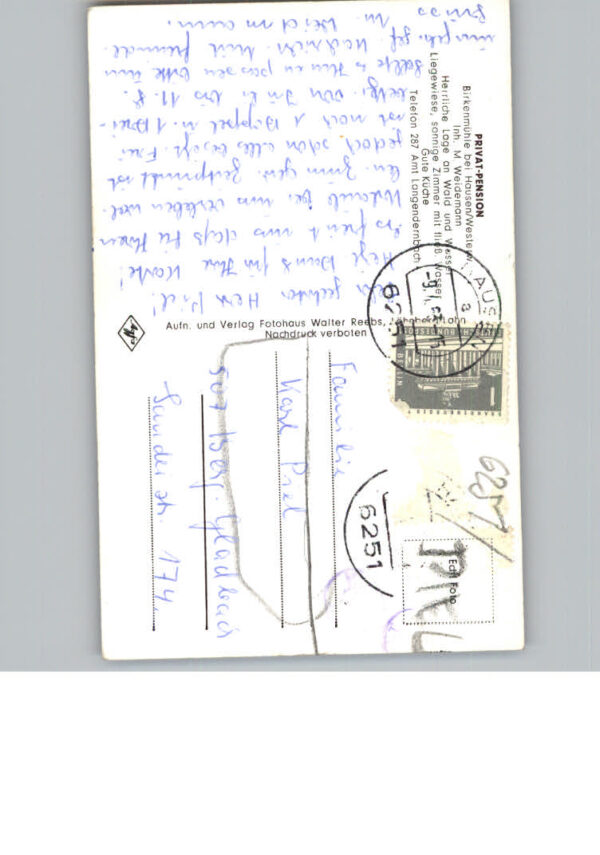 PRIVAT-PENSION
Birkenmühle bei Hausen/Westerw.
Inh. M. Weidemann
Herrliche Lage an Wald und Wasser
Liegewiese, sonnige Zimmer mit fließ. Wasser
Gute Küche
Telefon 287 Amt Langendernbach
Sehr geehrter Herr Piel!
Herzl. Dank für Ihre Karte!
Es freut uns daß Sie Ihren
Urlaub bei uns verleben wol-
len. Zum gen. Zeitpunkt ist
jedoch schon alles besetzt. Frei
ist noch 1 Doppel u. 1 Drei-
bettzi. von bis 11. 8.
Sollte es Ihnen passen bitte um
gefl. Nachricht. Mit freundl.
Gruss M. Weidemann
Aufn. und Verlag Fotohaus Walter Reebs, Löhnberg/Lahn
Nachdruck verboten
Agfa
6251
HAUSEN
a
DEUTSCHE BUNDESPOST
BERLIN
1
6257
6251
Echt Foto
Familie
Karl Piel
507 Berg. Gladbach
Sander str. 174